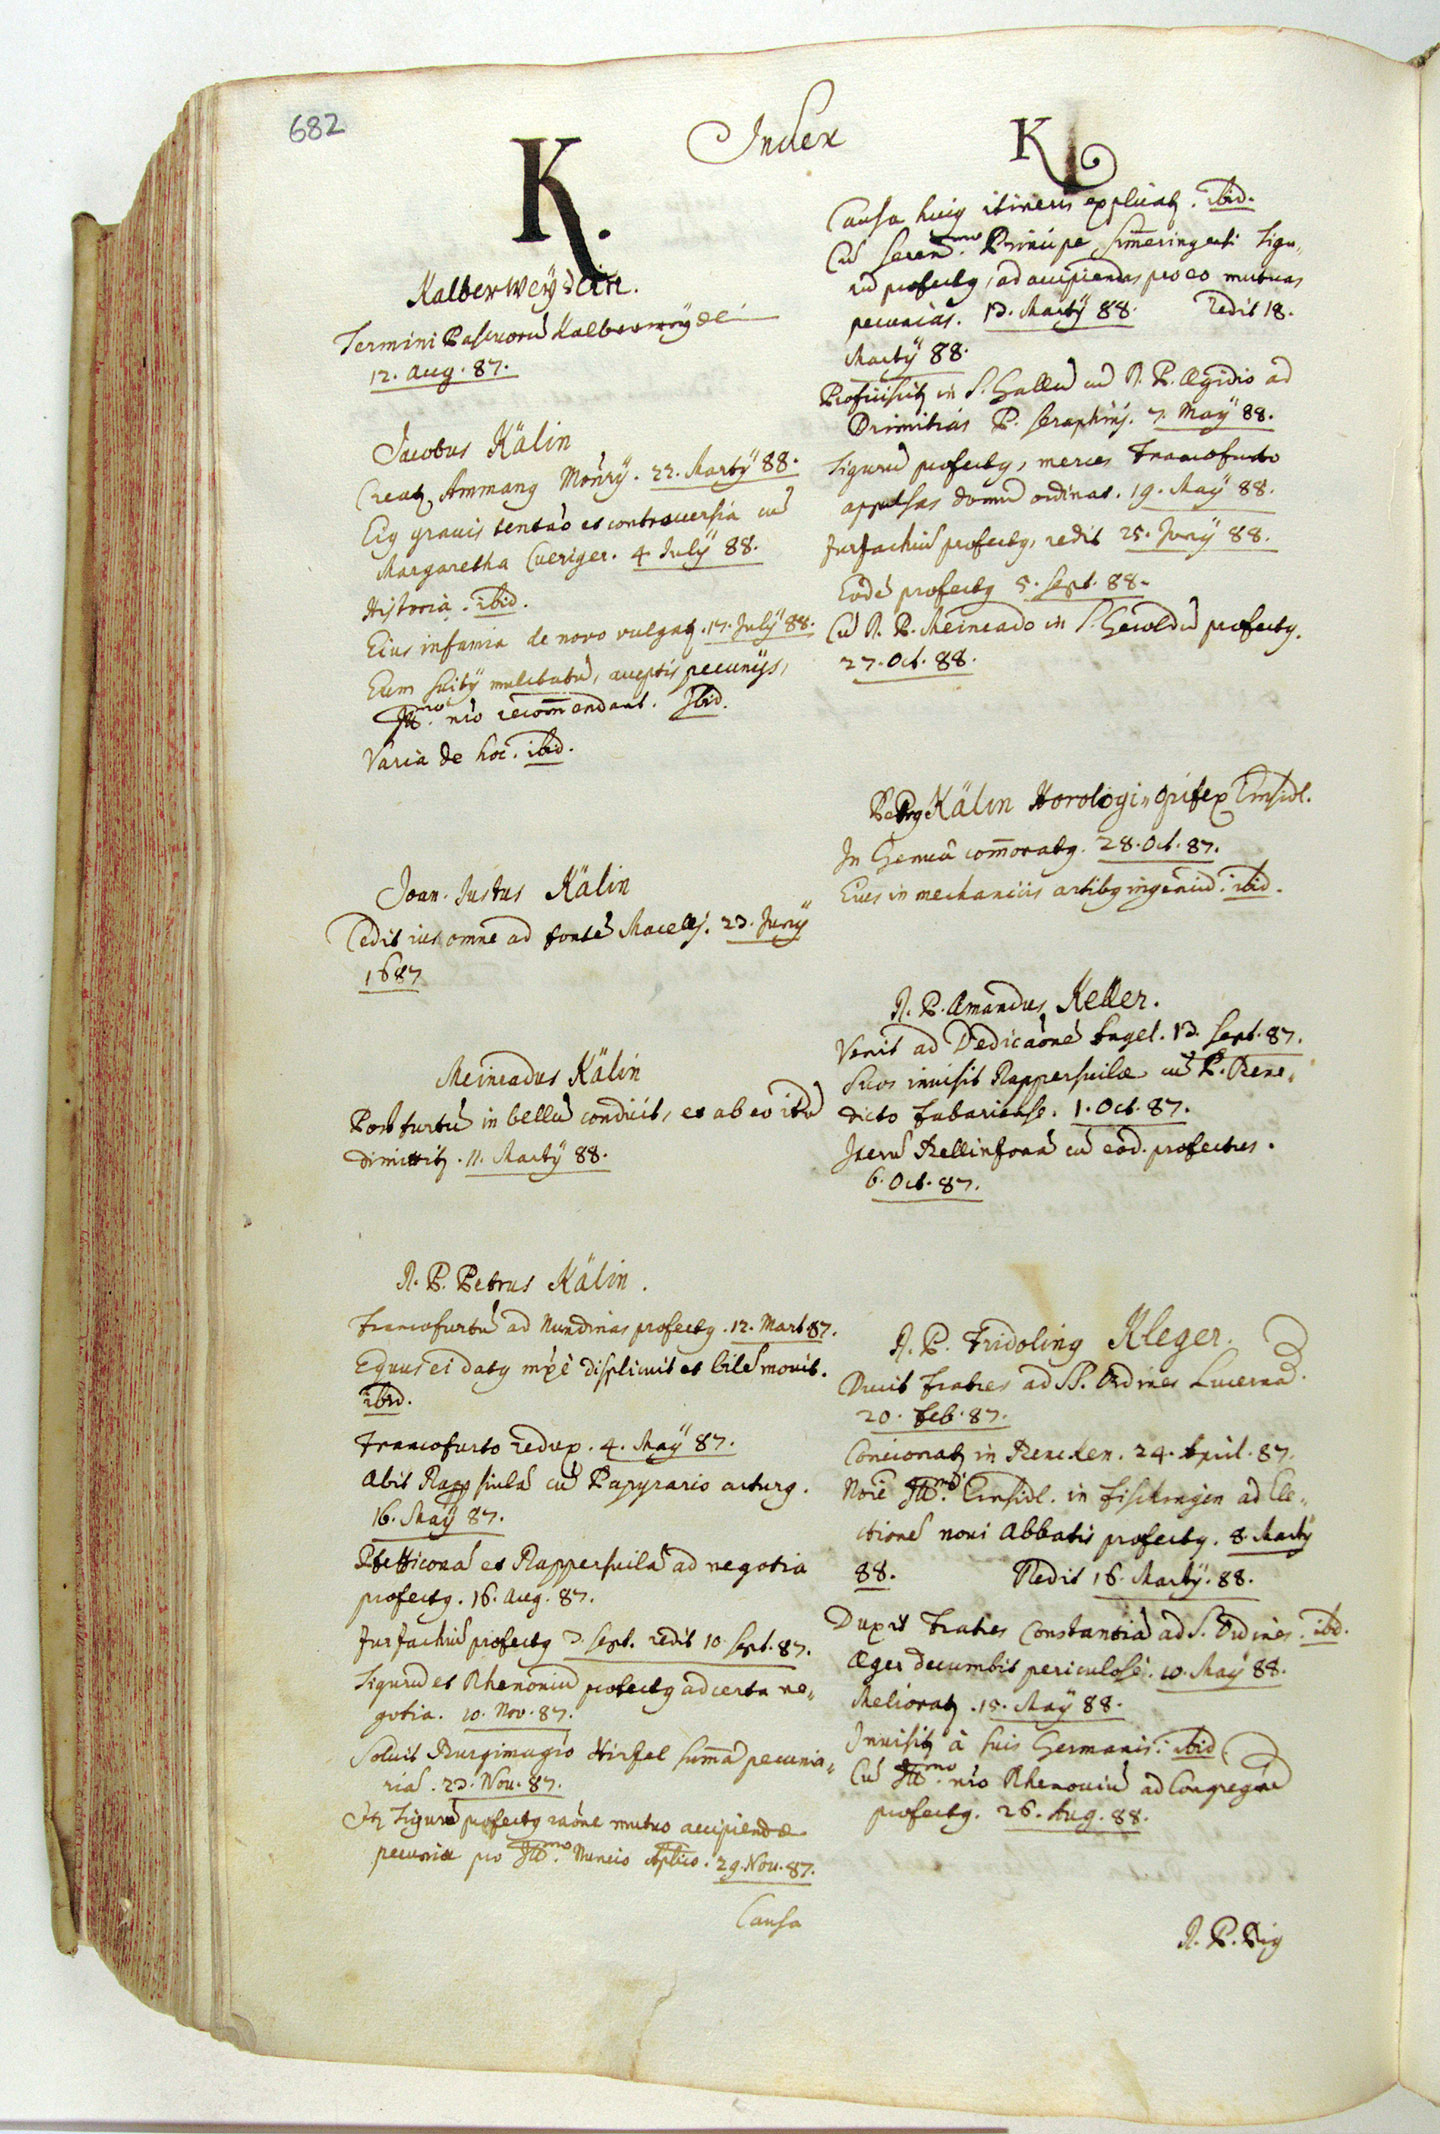 682
Index
K.
Kalberweydlin.
Termini Pascuorũ Kalberweydli
12. Aug. 87.
Jacobus Kälin
Creatq Ammang Monrÿ. 22. Martÿ 88.
Eiq gravis tentaõ et controversia cũ
Margaretha Cueriger. 4 Julÿ 88.
Historia. ibid.
Eius infamia de novo vulgatq. 17. Julÿ 88.
Eum Suitÿ mulctatũ, acceptis pecunijs,
Illmo nro recommendant. Ibid.
Varia de hoc. ibid.
Joan. Justus Kälin
Cedit ius omne ad fontẽ Macelli. 23. Junÿ
1687
Meinradus Kälin
Post furtũ in bellũ conducit, et ab eo itũ
dimittitq. 11. Martÿ 88.
R. P. Petrus Kälin.
Francofurtũ ad Nundinas profectq. 12. Mart 87.
Equus ei datq mxè displicuit et bilẽ movit.
ibid.
Francofurto redux. 4. Maÿ 87.
Abit Rappsuilã cũ Papyrario acturq.
16. Maÿ 87.
Pfefficonã et Rappersuilã ad negotia
profectq. 16. Aug. 87.
Zurzachiũ profectq 3 Sept. redit 10 Sept. 87.
Tigurũ et Rhenoviũ profectq ad certa ne„
gotia. 10. Nov. 87.
Soluit Burgimagrõ Hirzel summã pecunia„
riã. 23. Nov. 87.
Itq Tigurũ profectq raõne mutuo accipiendæ
pecuniæ pro Illmo Nuncio Aplico. 29. Nov. 87.
Causa
K
Causa huiq itineris explicatq. ibid.
Cũ Serenmo Principe Simeringensi Tigu„
rũ profectq, ad accipiendas pro eo mutuas
pecunias. 13. Martÿ 88. Redit 18.
Martÿ 88.
Proficiscitq in S. Gallũ cũ R. P. Ægidio ad
Primitias P. Seraphini. 7. Maÿ 88.
Tigurũ profectq, merces Francofurto
appulsas domũ ordinat. 19. Maÿ 88.
Zurzachiũ profectq, redit 25. Junÿ 88.
Eodẽ profectq 5. Sept. 88.
Cũ R. P. Meinrado in S. Geroldũ profectq.
27. Oct. 88.
Petrq Kälin Horologi„ opifex Einsidl.
In Genua comoratq. 28. Oct. 87.
Eius in mechanicis artibq ingeniũ. ibid.
R. P. Amandus Keller.
Venit ad Dedicaõnẽ Angel. 13. Sept. 87.
Suos invisit Rappersuilæ cũ P. Bene„
dicto Fabariense. 1. Oct. 87.
Iterũ Bellinzonã cũ eod. profectus.
6. Oct. 87.
R. P. Fridolinq Kleger.
Ducit Fratres ad SS. Ordines Lucernã.
20. Feb. 87.
Concionatq in Bencken. 24. April. 87.
Noiẽ Illmi Einsidl. in Fischingen ad Ele„
ctionẽ novi Abbatis profectq. 8. Martÿ
88. Redit 16. Martÿ. 88.
Duxit Fratres Constantiã ad S. Ordines. ibid.
Æger decumbit periculosè. 10. Maÿ 88.
Melioratq. 15. Maÿ 88.
Invisitq à suis Germanis. ibid.
Cũ Illmo nro Rhenoviũ ad Congregãe
profectq. 26. Aug. 88.
R. P. Piq